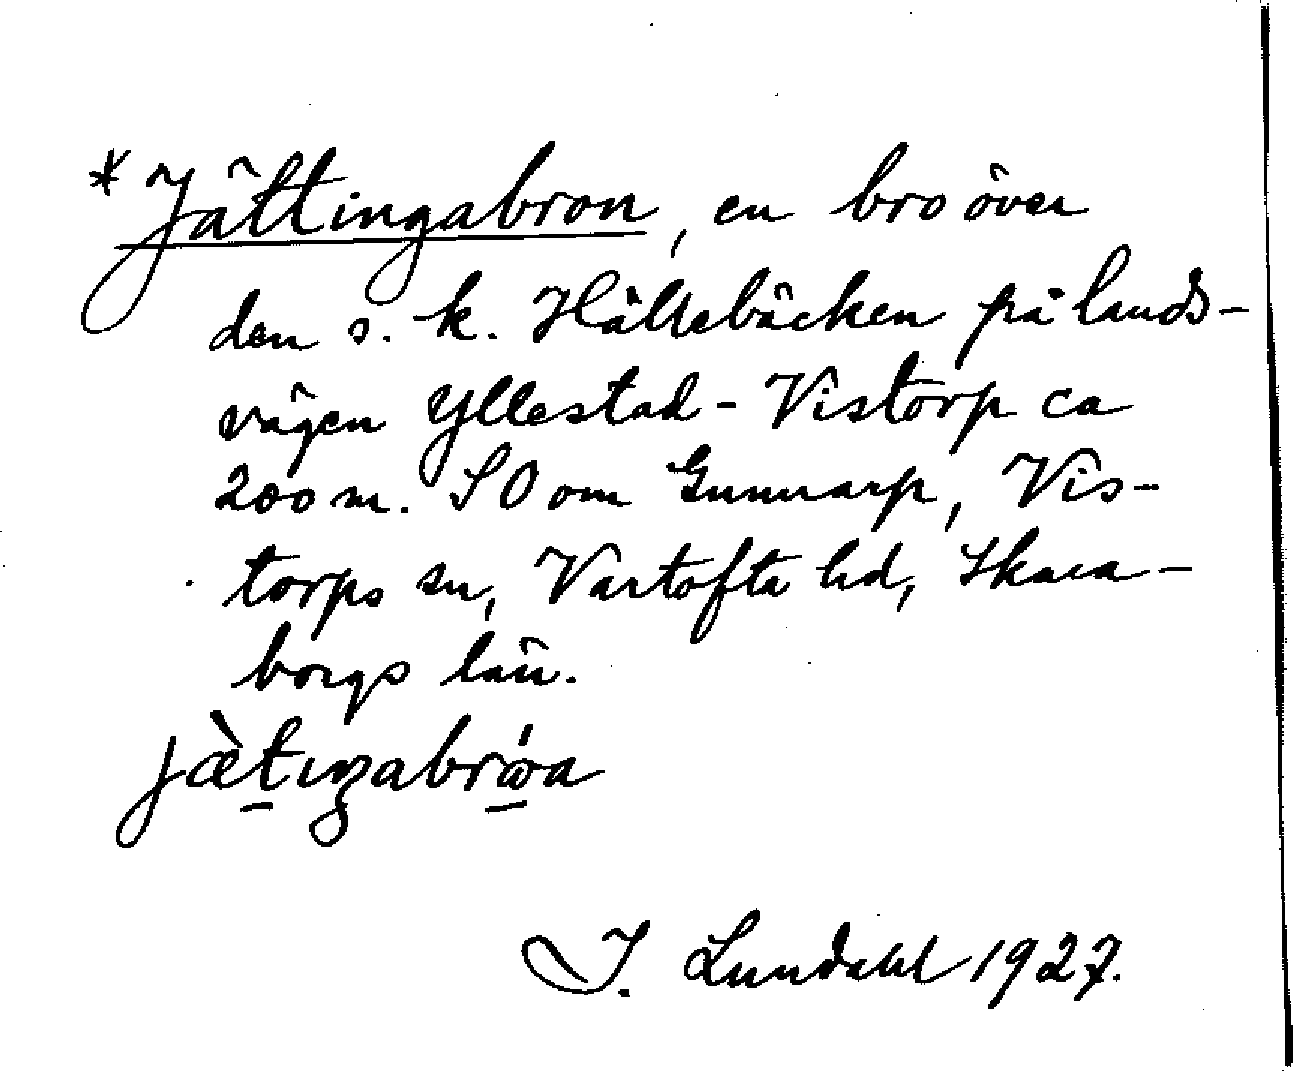 * Jättingabron, en bro över
den s. k. Hältebäcken på lands-
vägen Yllestad - Vistorp ca
200 m. SO om Gunnarp, Vis-
torps sn, Vartofta hd, Skara-
borgs län.
jæ̀t̠ıŋabrẃ̠a
I. Lundahl 1927.